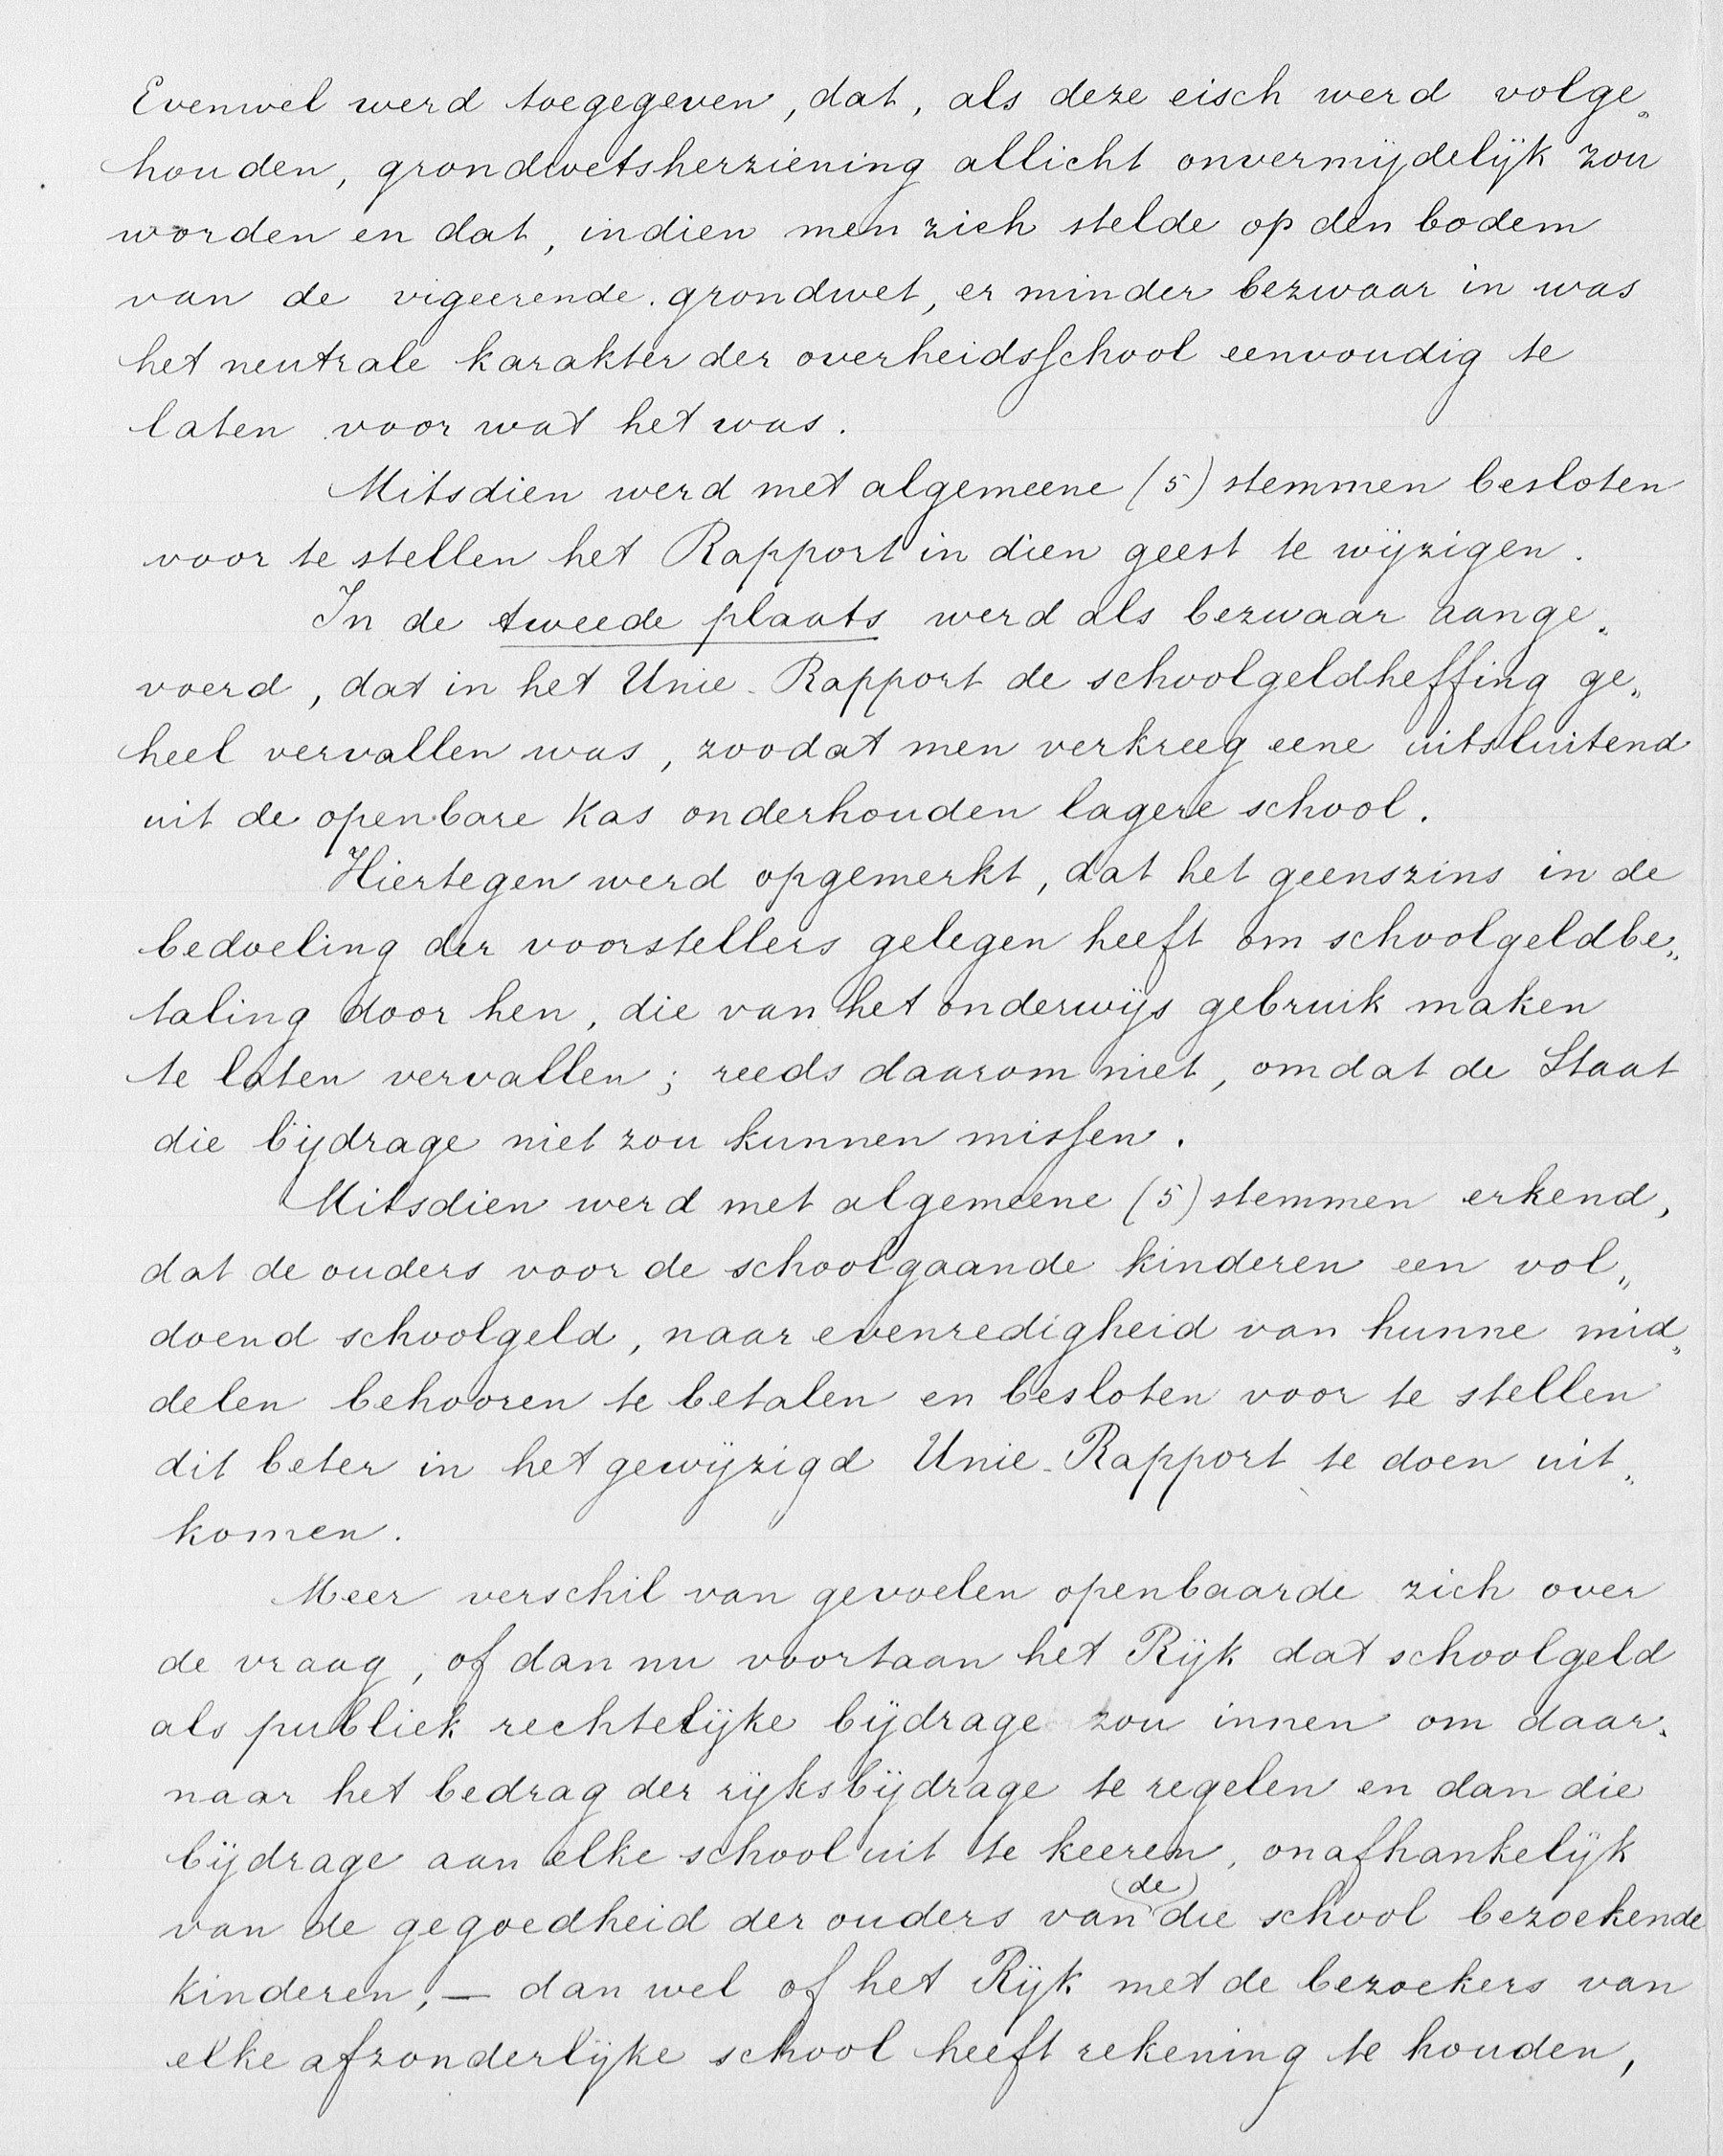 Evenwel werd toegegeven, dat, als deze eisch werd volge„
houden, grondwetsherziening allicht onvermijdelijk zou
worden en dat, indien men zich stelde op den bodem
van de vigeerende grondwet, er minder bezwaar in was
het neutrale karakter der overheidsschool eenvoudig te
laten voor wat het was.
Mitsdien werd met algemeene (5) stemmen besloten
voor te stellen het Rapport in dien geest te wijzigen.
In de tweede plaats werd als bezwaar aange„
voerd, dat in het Unie-Rapport de schoolgeldheffing ge„
heel vervallen was, zoodat men verkreeg eene uitsluitend
uit de openbare kas onderhouden lagere school.
Hiertegen werd opgemerkt, dat het geenszins in de
bedoeling der voorstellers gelegen heeft om schoolgeldbe„
taling door hen, die van het onderwijs gebruik maken
te laten vervallen; reeds daarom niet, omdat de Staat
die bijdrage niet zou kunnen missen.
Mitsdien werd met algemeene (5) stemmen erkend,
dat de ouders voor de schoolgaande kinderen een vol„
doend schoolgeld, naar evenredigheid van hunne mid„
delen behooren te betalen en besloten voor te stellen
dit beter in het gewijzigd Unie-Rapport te doen uit„
komen.
Meer verschil van gevoelen openbaarde zich over
de vraag, of dan nu voortaan het Rijk dat schoolgeld
als publiek rechtelijke bijdrage zou innen om daar„
naar het bedrag der rijksbijdrage te regelen en dan die
bijdrage aan elke school uit te keeren, onafhankelijk
van de gegoedheid der ouders van (de) die school bezoekende
kinderen, — dan wel of het Rijk met de bezoekers van
elke afzonderlijke school heeft rekening te houden,